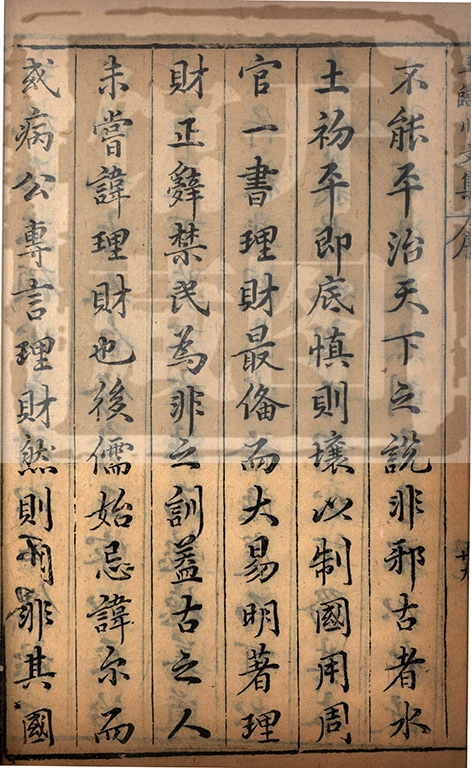 不能平治天下之說非邪古者水
土初平即底慎則壤以制國用周
官一書理財最俻而大易明著理
財正辭禁民為非之訓葢古之人
未嘗諱理財也後儒始忌諱尓而
或病公專言理財然則羽非其國